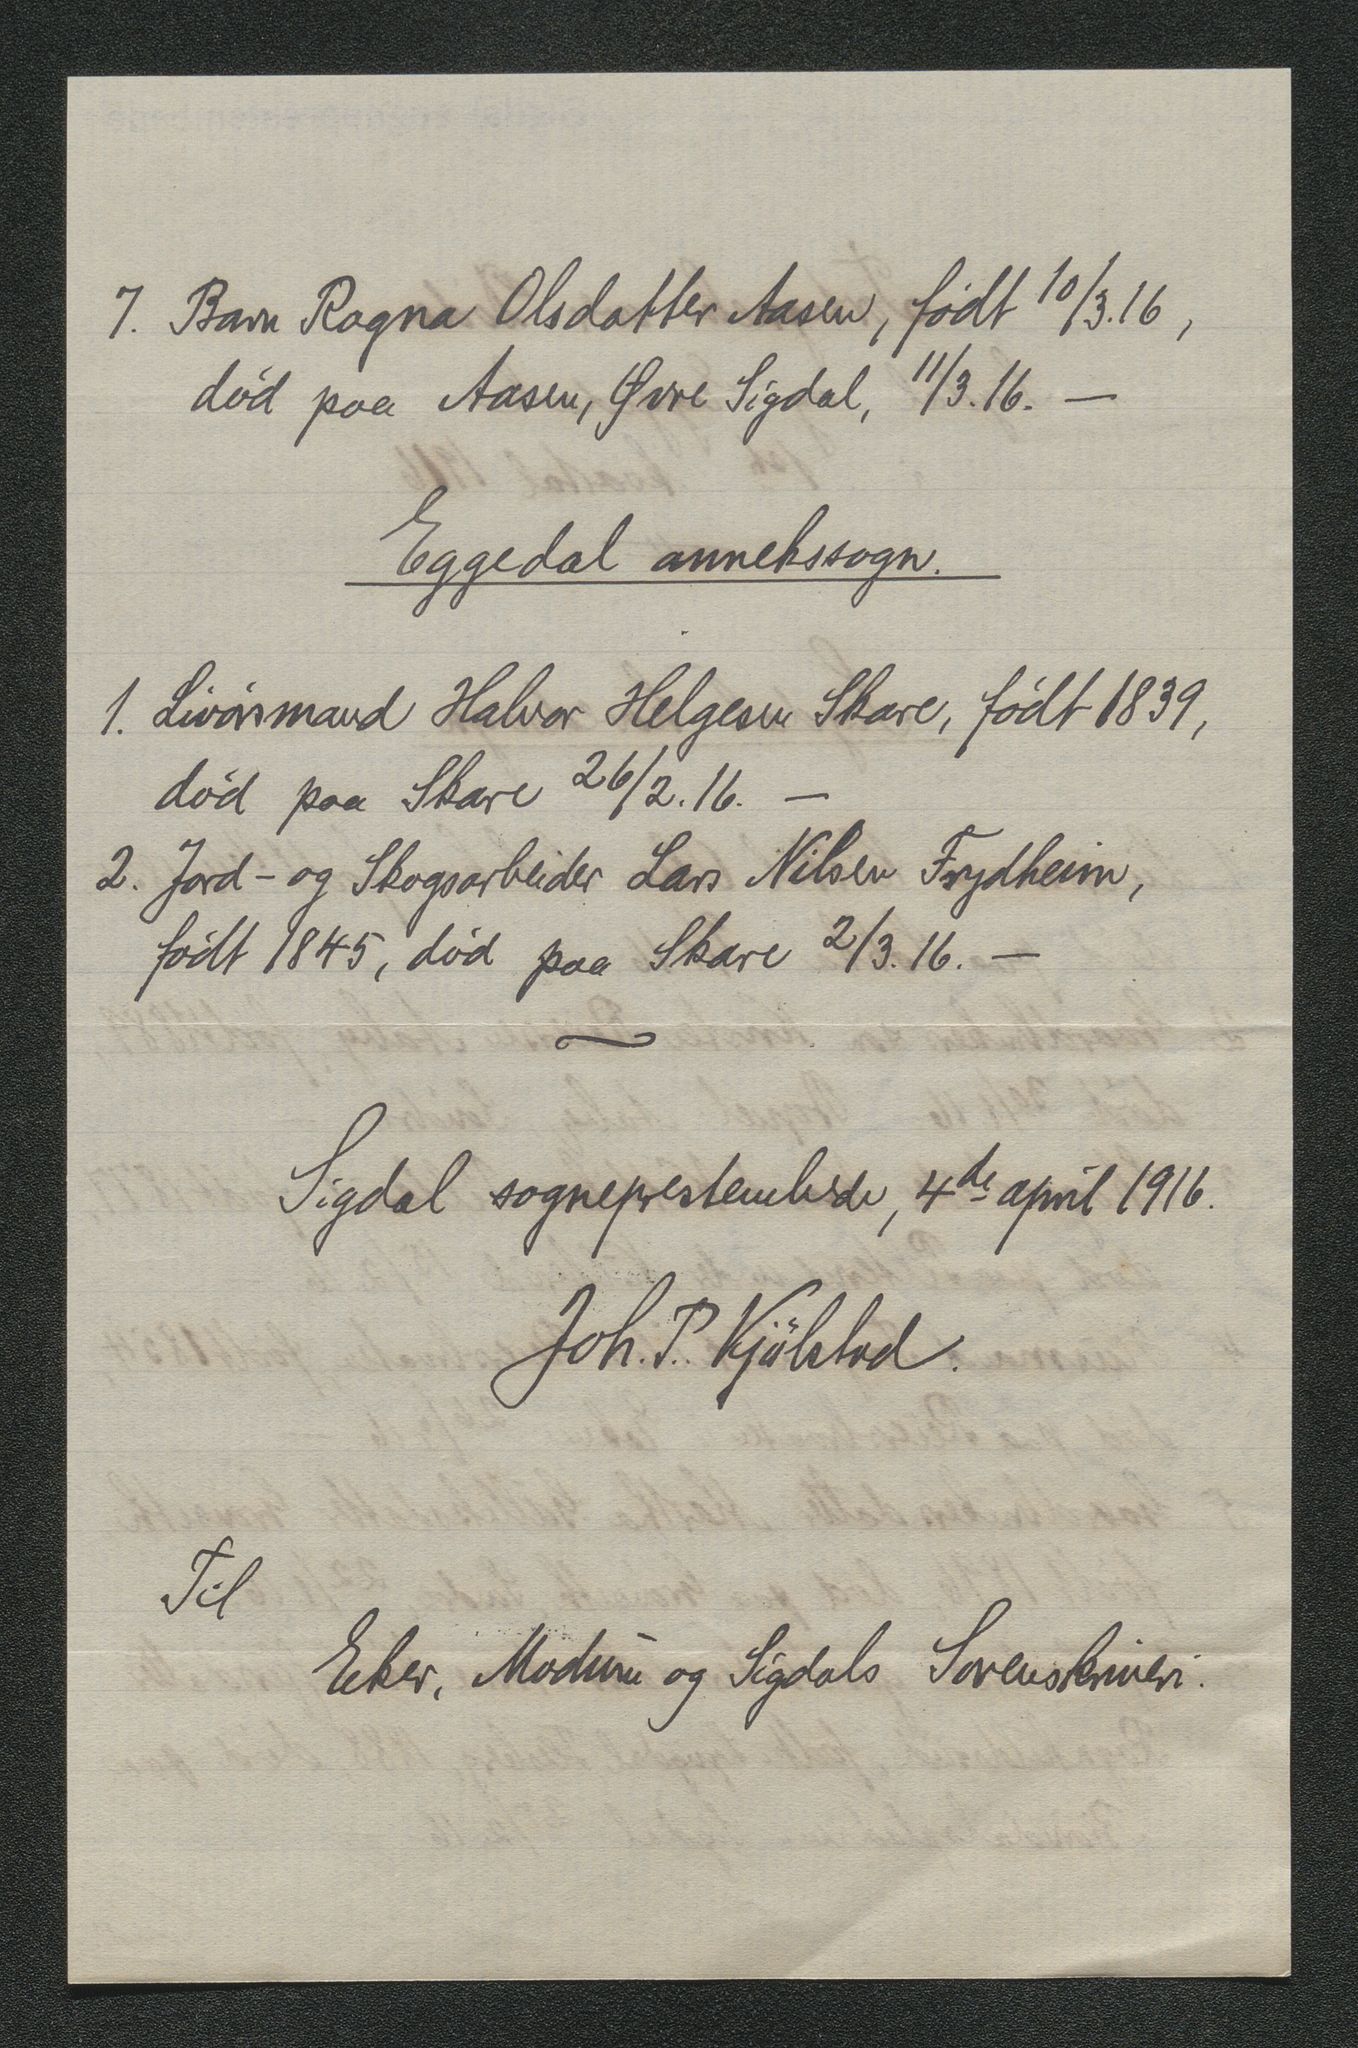 7. Barn Ragna Olsdatter Aasen, født 10/3.16,
død paa Aasen, Øvre Sigdal, 11/3.16. —
Eggedal annekssogn.
1. Livørsmand Halvor Helgesen Skare, født 1839,
død paa Skare 26/2.16. —
2. Jord- og Skogsarbeider Lars Nilsen Frydheim,
født 1845, død paa Skare 2/3.16. —
Sigdal sogneprestembede, 4de april 1916.
Joh. P. Kjölstad.
Til
Eker, Modum og Sigdals Sorenskriveri.